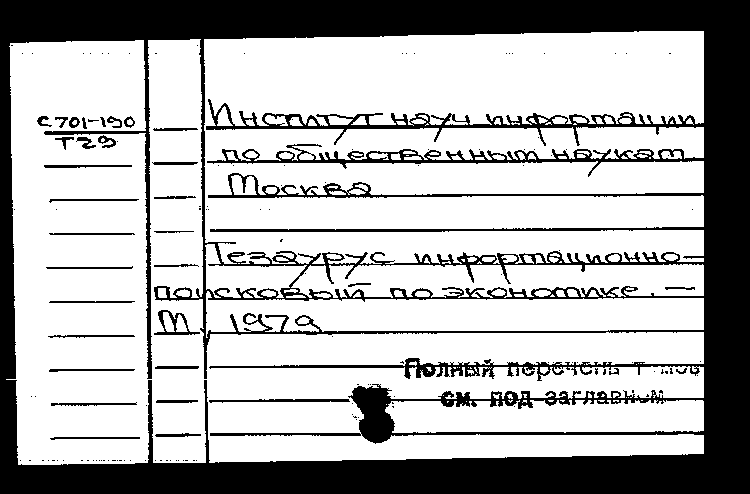 С701-190
Т29
Институт науч информации
по общественным наукам
Москва
Тезаурус информационно-
поисковый по экономике. —
М 1979
Полный перечень томов
см. под заглавием